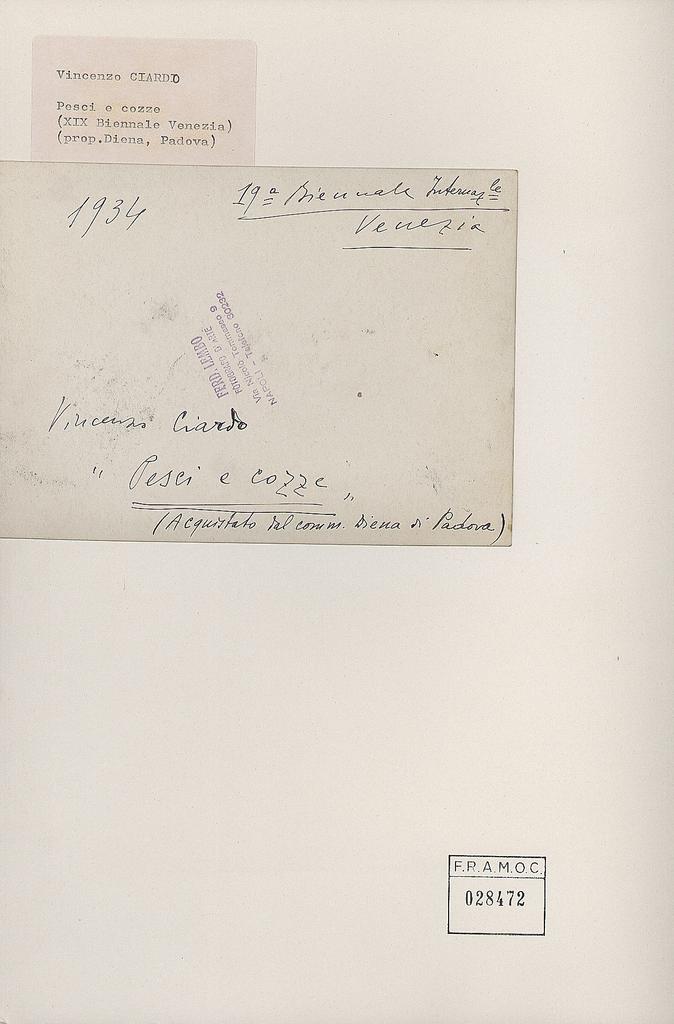 Vincenzo CIARDO
Pesci e cozze
(XIX Biennale Venezia)
(prop.Diena, Padova)
1934
19ª Biennale Internazle
Venezia
FERD. LEMBO
FOTOGRAFO D'ARTE
Via Nicolò Tommaseo 9
NAPOLI - Telefono 30232
Vincenzo Ciardo
" Pesci e cozze "
(Acquistato dal comm. Diena di Padova)
F.R.A.M.O.C.
028472